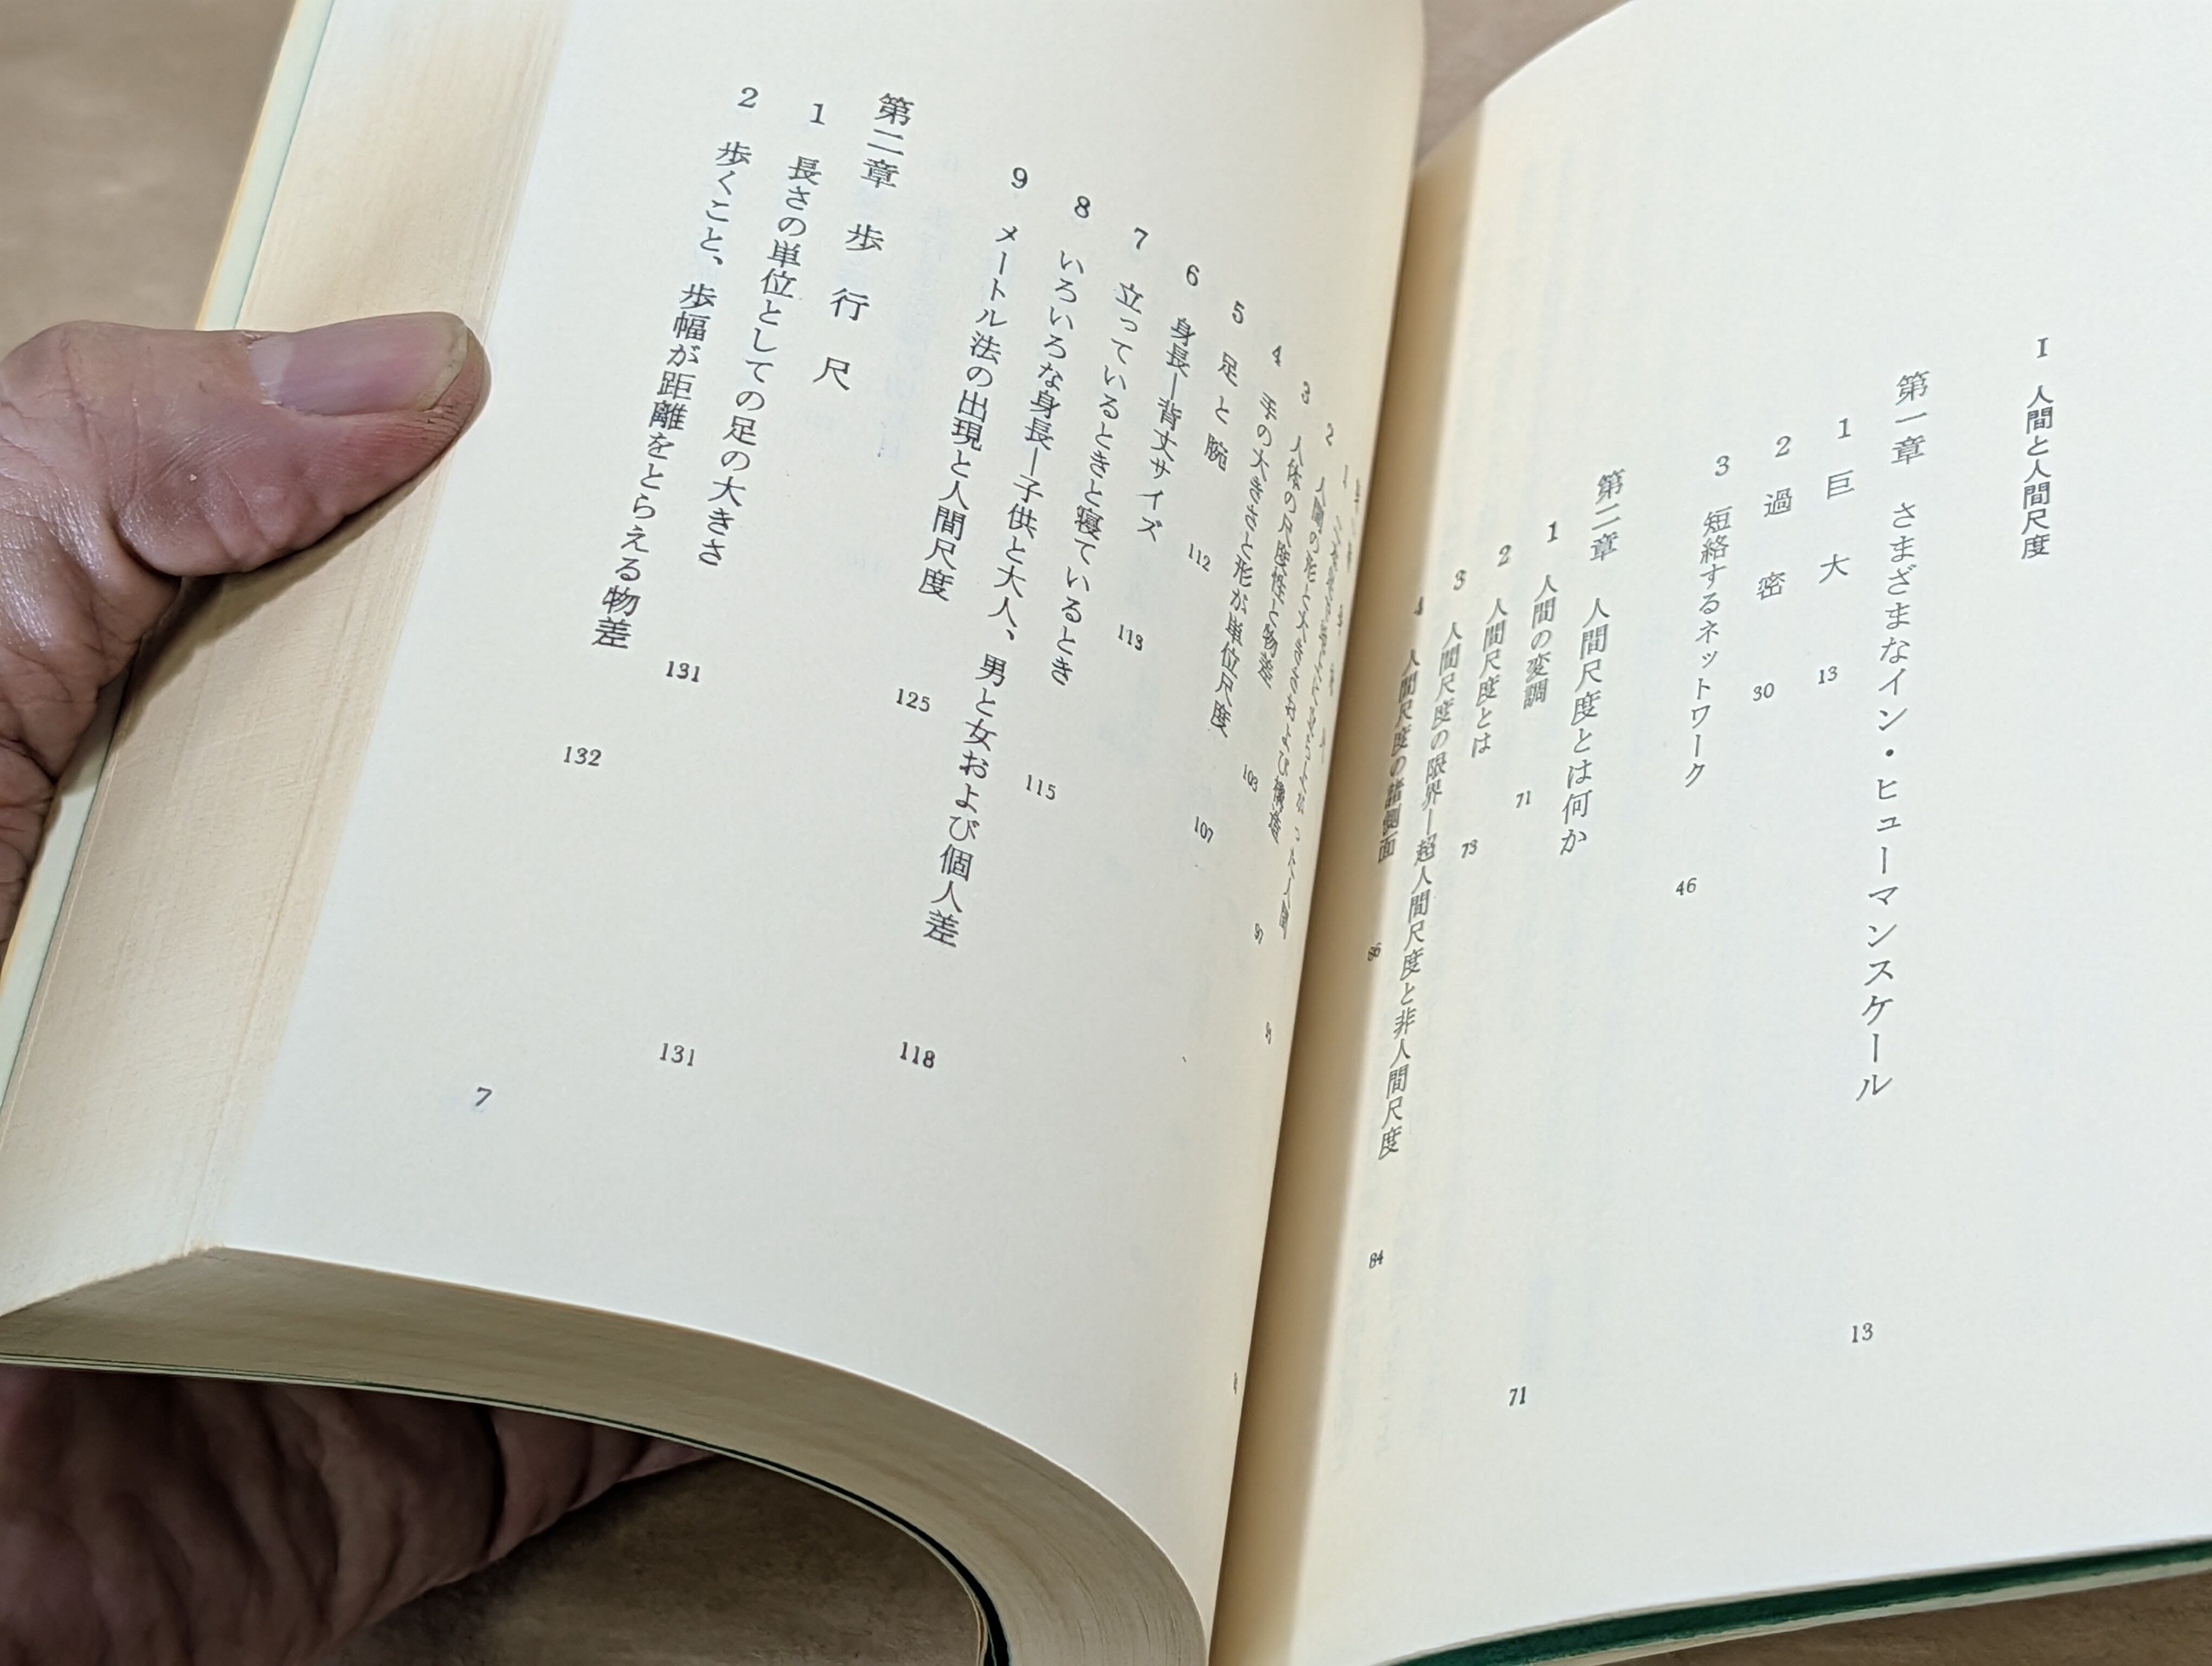 I 人間と人間尺度
第一章 さまざまなイン・ヒューマンスケール 13
1 巨大 13
2 過密 30
3 短絡するネットワーク 46
第二章 人間尺度とは何か 71
1 人間の変調 71
2 人間尺度とは 73
3 人間尺度の限界―超人間尺度と非人間尺度 84
4 人間尺度の諸側面 86
2 人間の形と大きさおよび構造
3 人体の尺度性と物差 97
4 手の大きさと形が単位尺度 103
5 足と腕 107
6 身長―背丈サイズ 112
7 立っているときと寝ているとき 113
8 いろいろな身長―子供と大人、男と女および個人差 115
9 メートル法の出現と人間尺度 125
第二章 歩行尺 131
1 長さの単位としての足の大きさ 131
2 歩くこと、歩幅が距離をとらえる物差 132
118
7